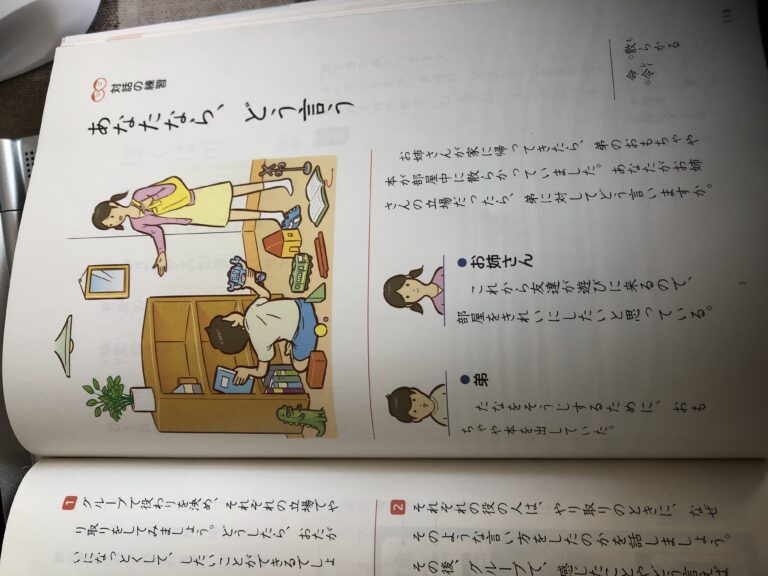 対話の練習
あなたなら、どう言う
お姉さんが家に帰ってきたら、弟のおもちゃや
本が部屋中に散らかっていました。あなたがお姉
さんの立場だったら、弟に対してどう言いますか。
●お姉さん
これから友達が遊びに来るので、
部屋をきれいにしたいと思っている。
●弟
たなをそうじするために、おも
ちゃや本を出していた。
散らかる
命令
118
5
1 グループで役わりを決め、それぞれの立場でや
り取りをしてみましょう。どうしたら、おたが
いになっとくして、したいことができるでしょ
2 それぞれの役の人は、やり取りのときに、なぜ
そのような言い方をしたのかを話しましょう。
その後、グループで、感じたことやどう言えば